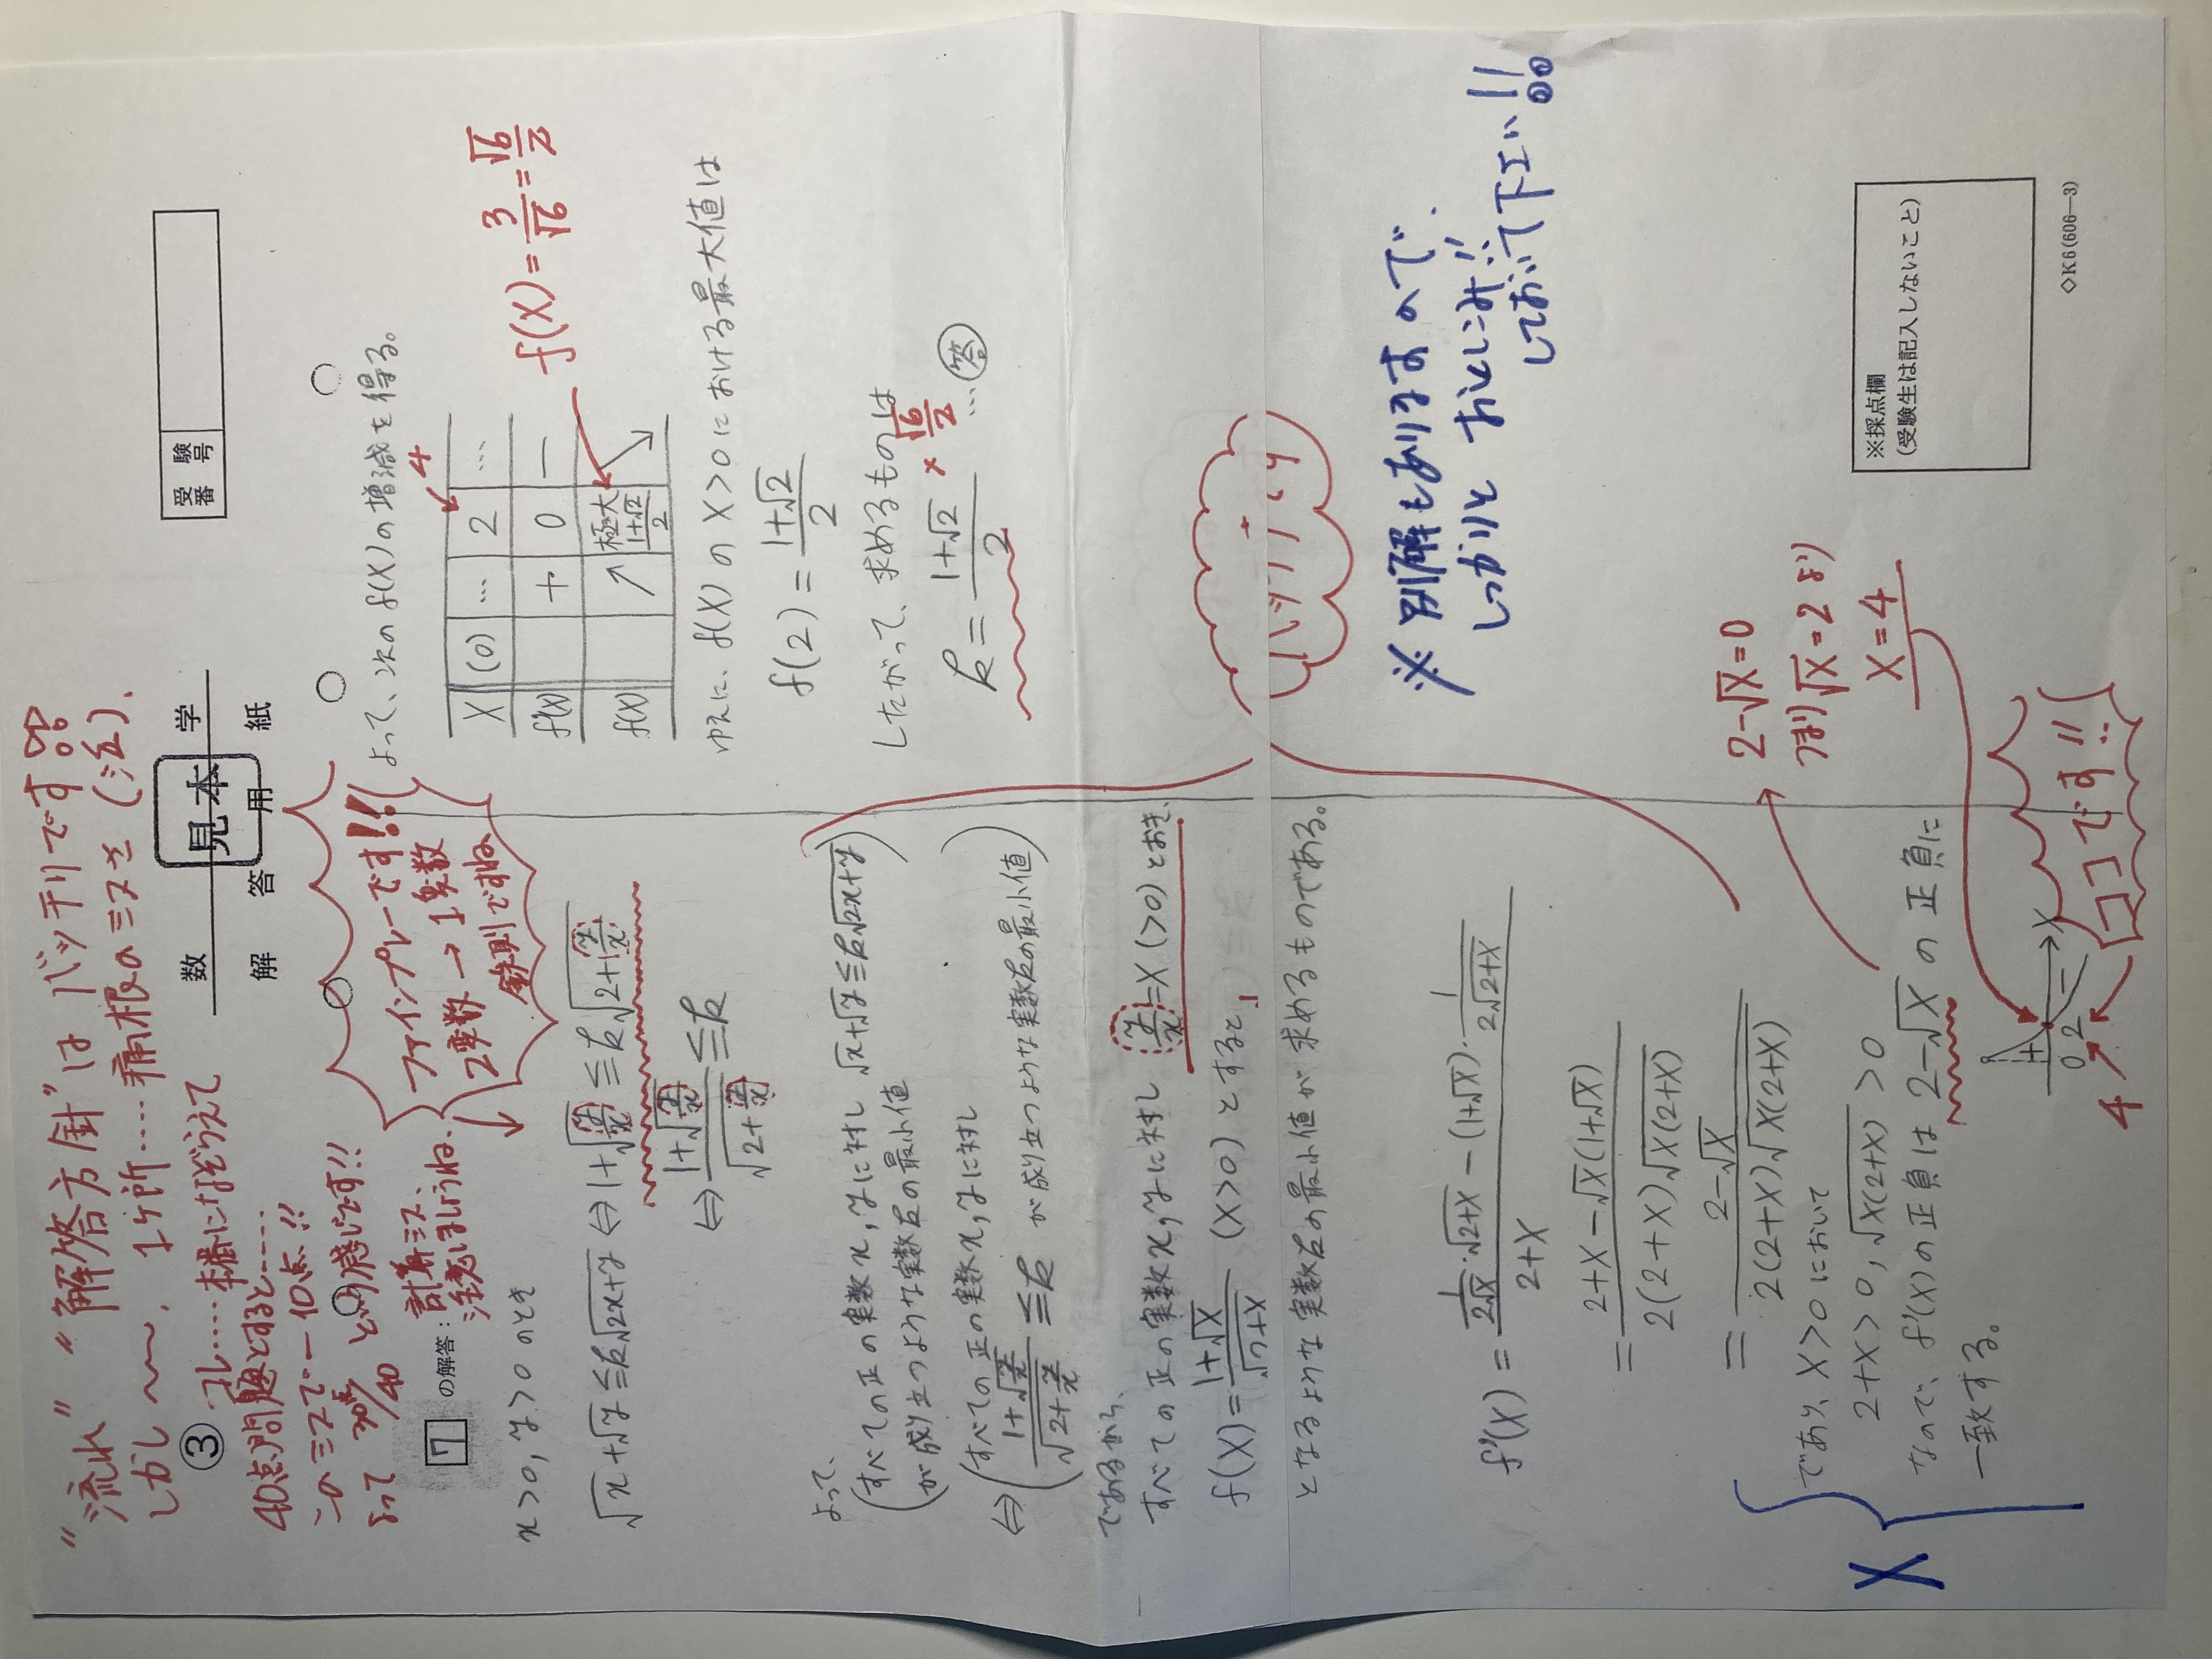 "流れ" "解答方針" は バッチリです!!
しかし〜〜、1ヶ所……痛根のミスさ(泣).
③ コレ……本番になぞらえて
40点問題とすると……
このミスで −10点!!
よって 30点/40 という感じです!!
計算ミス、
注意しましょうね、
数 学
見本
解 答 用 紙
受験
番号
ファインプレーです!!
2変数→1変数
鉄則ですね
7 の解答:
x>0, y>0 のとき
√x+√y≦k√2x+y ⇔ 1+√y/x ≦ k√2+y/x
⇔ 1+√y/x / √2+y/x ≦k
よって、
(すべての正の実数x, yに対し √x+√y≦k√2x+y
が成り立つような実数kの最小値)
⇔ (すべての正の実数x, yに対し
1+√y/x / √2+y/x ≦k が成り立つような実数kの最小値)
であるから、
すべての正の実数x, yに対し y/x=X(>0)とおき、
f(X)= 1+√X / √2+X (X>0) とすると、
となるような実数kの最小値が求めるものである。
f'(X)= 1/2√X・√2+X −(1+√X)・1/2√2+X / 2+X
= 2+X−√X(1+√X) / 2(2+X)√X(2+X)
= 2−√X / 2(2+X)√X(2+X)
であり、X>0において
2+X>0, √X(2+X)>0
なので、f'(X)の正負は 2−√X の正負に
一致する。
X
2
+
−
0 2
X
4
ココです!!
2−√X=0
つまり√X=2より
X=4
よって、次のf(X)の増減を得る。
4
X (0) … 2 …
f'(X) + 0 −
f(X) ↗ 極大 1+√2/2 ↘
f(X)=3/√6=√6/2
ゆえに、f(X)のX>0における最大値は
f(2)= 1+√2 / 2
したがって、求めるものは
k= 1+√2 / 2 × √6/2 …(答)
バッチリ
※ 別解もありますので、
しっかりと おとしこみ!!
しておいて下さい!!
※採点欄
(受験生は記入しないこと)
◇K6(606—3)